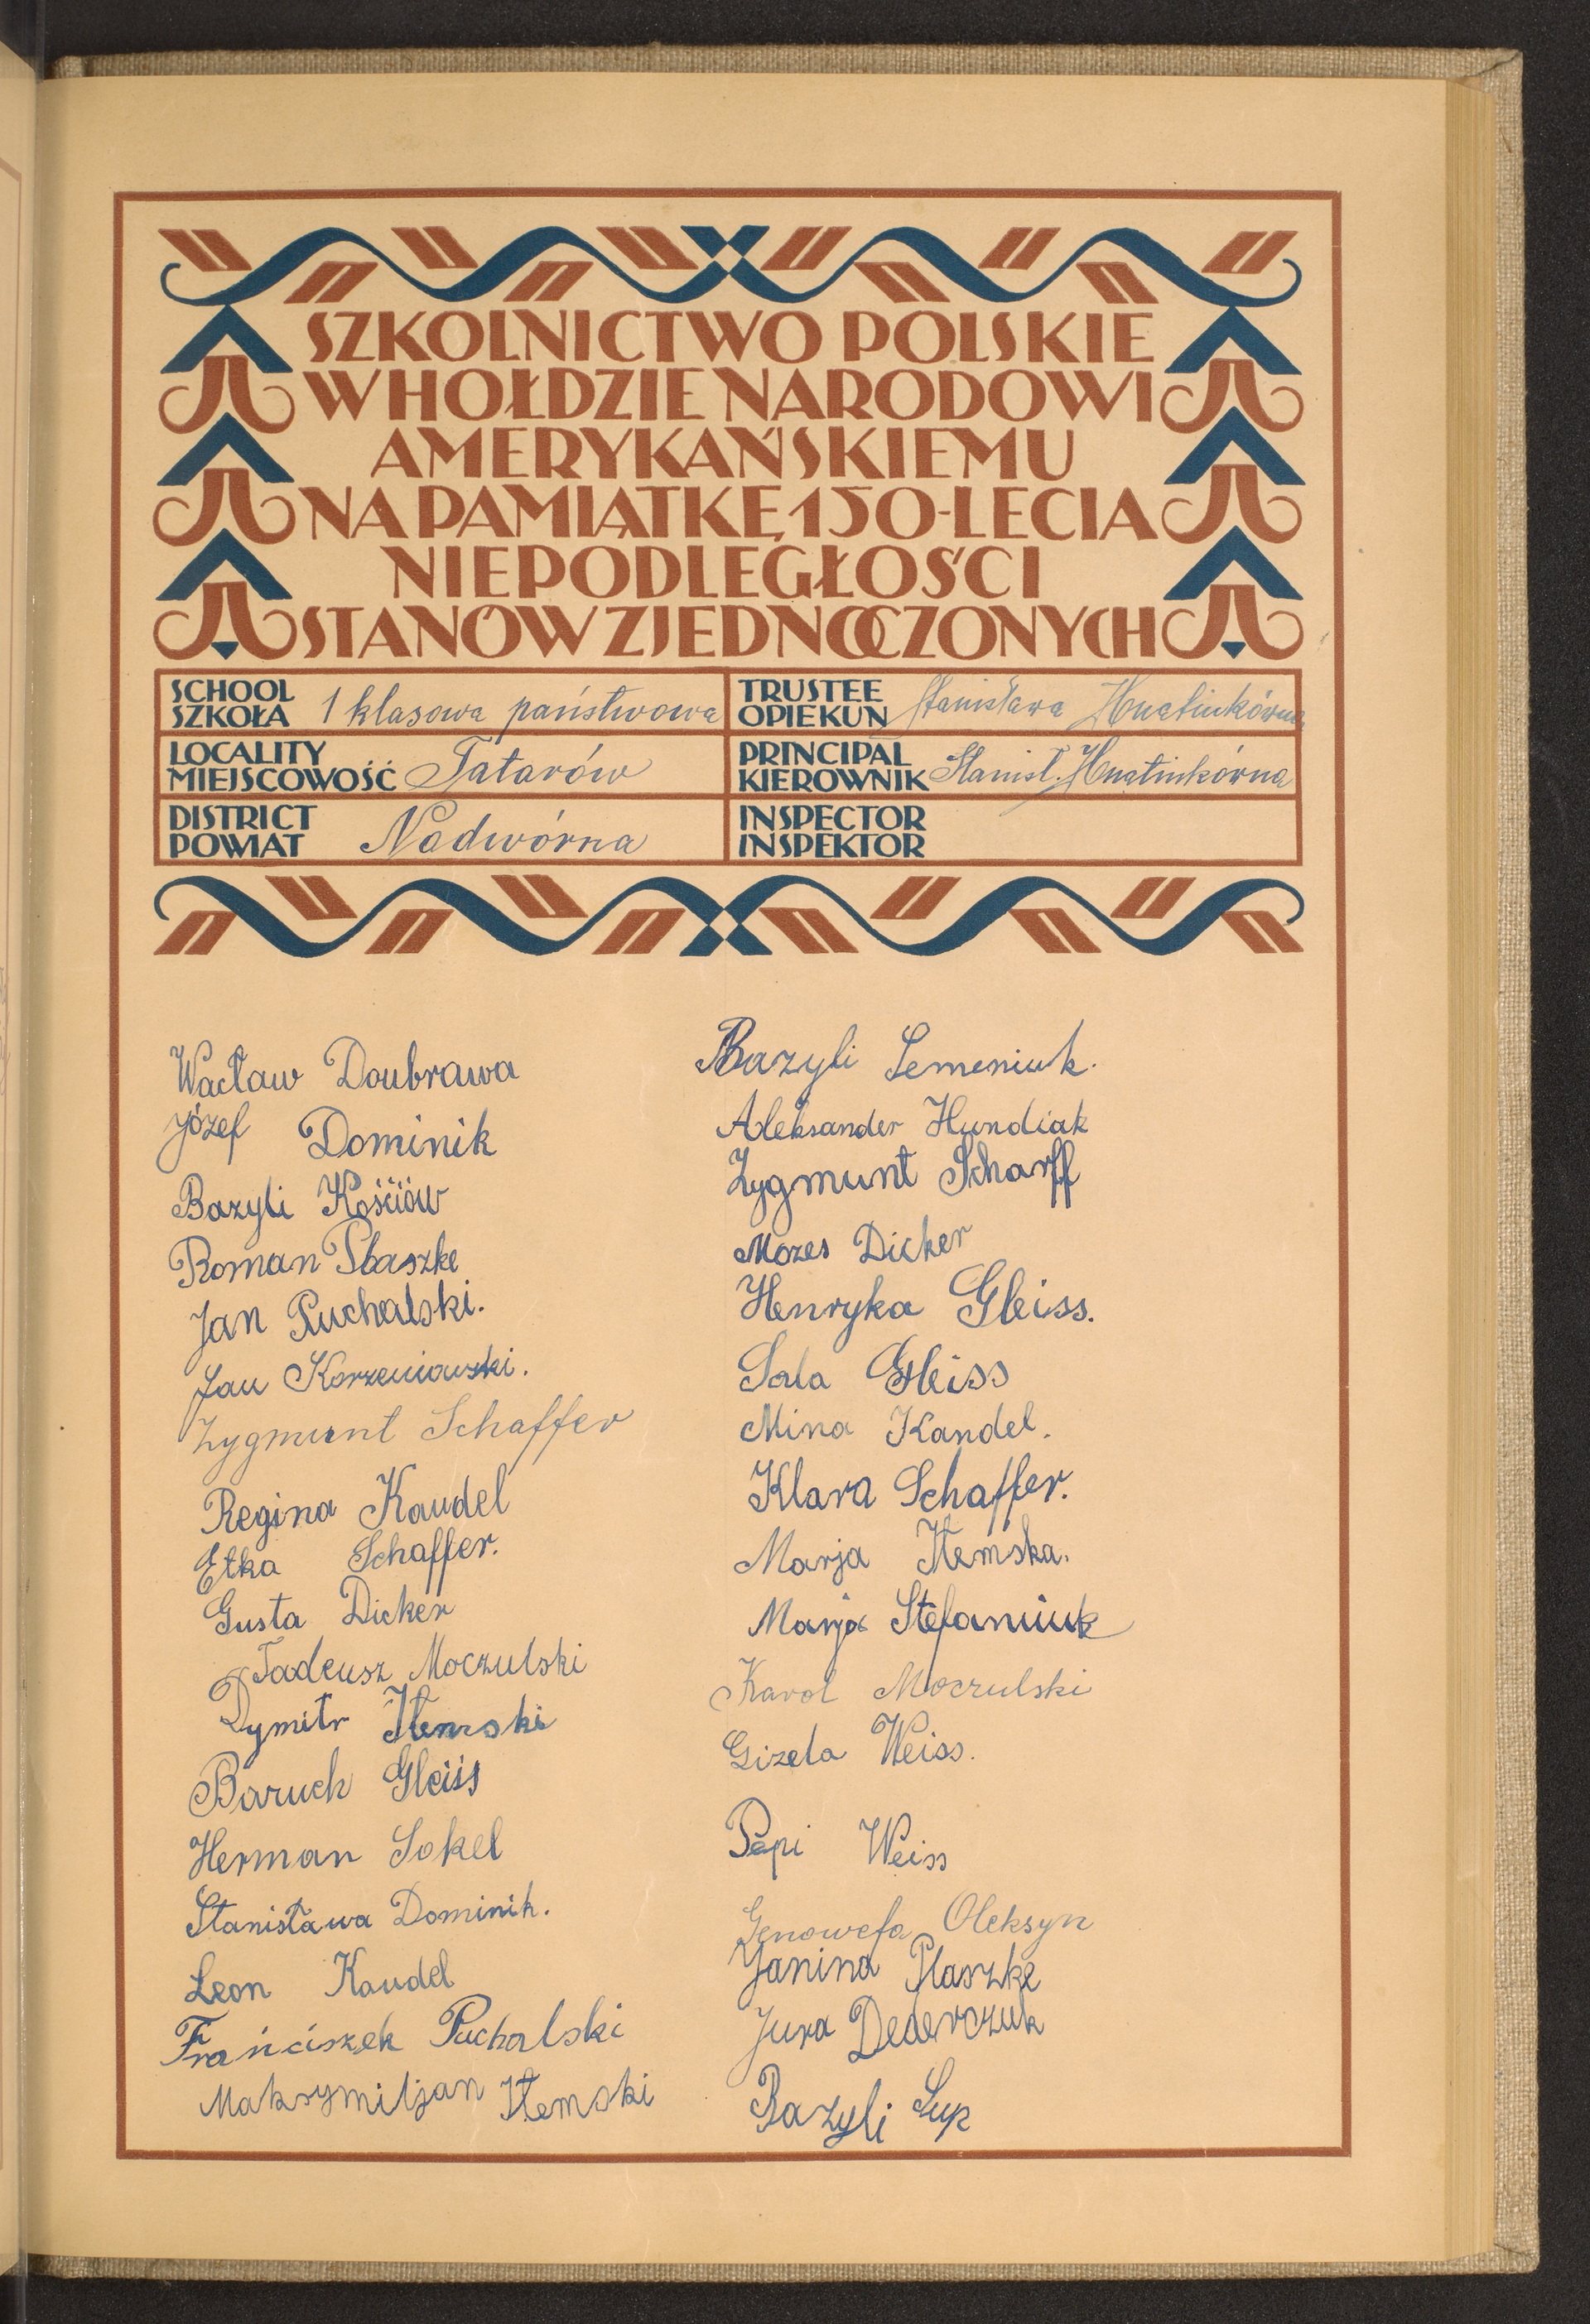 SZKOLNICTWO POLSKIE
W HOŁDZIE NARODOWI
AMERYKAŃSKIEMU
NA PAMIĄTKĘ 150-LECIA
NIEPODLEGŁOŚCI
STANÓW ZJEDNOCZONYCH
SCHOOL
SZKOŁA 1 klasowa państwowa
TRUSTEE
OPIEKUN Stanisława Hnatiukówna
LOCALITY
MIEJSCOWOŚĆ Tatarów
PRINCIPAL
KIEROWNIK Stanisł. Hnatiukówna
DISTRICT
POWIAT Nadwórna
INSPECTOR
INSPEKTOR
Wacław Doubrawa
Józef Dominik
Bazyli Kościów
Roman Płaszke
Jan Puchalski.
Jan Korzeniowski.
Zygmunt Schaffer
Regina Kaudel
Etka Schaffer.
Gusta Dicker
Tadeusz Moczulski
Dymitr Ilemski
Baruch Gleiss
Herman Sokel
Stanisława Dominik.
Leon Kaudel
Franciszek Puchalski
Maksymiljan Ilemski
Bazyli Semeniuk.
Aleksander Hundiak
Zygmunt Scharff
Mozes Dicker
Henryka Gleiss.
Sala Gleiss
Mina Kandel.
Klara Schaffer.
Marja Ilemska.
Marja Stefaniuk
Karol Moczulski
Gizela Weiss.
Pepi Weiss
Genowefa Oleksyn
Janina Płaszke
Jura Dederczuk
Bazyli Łup